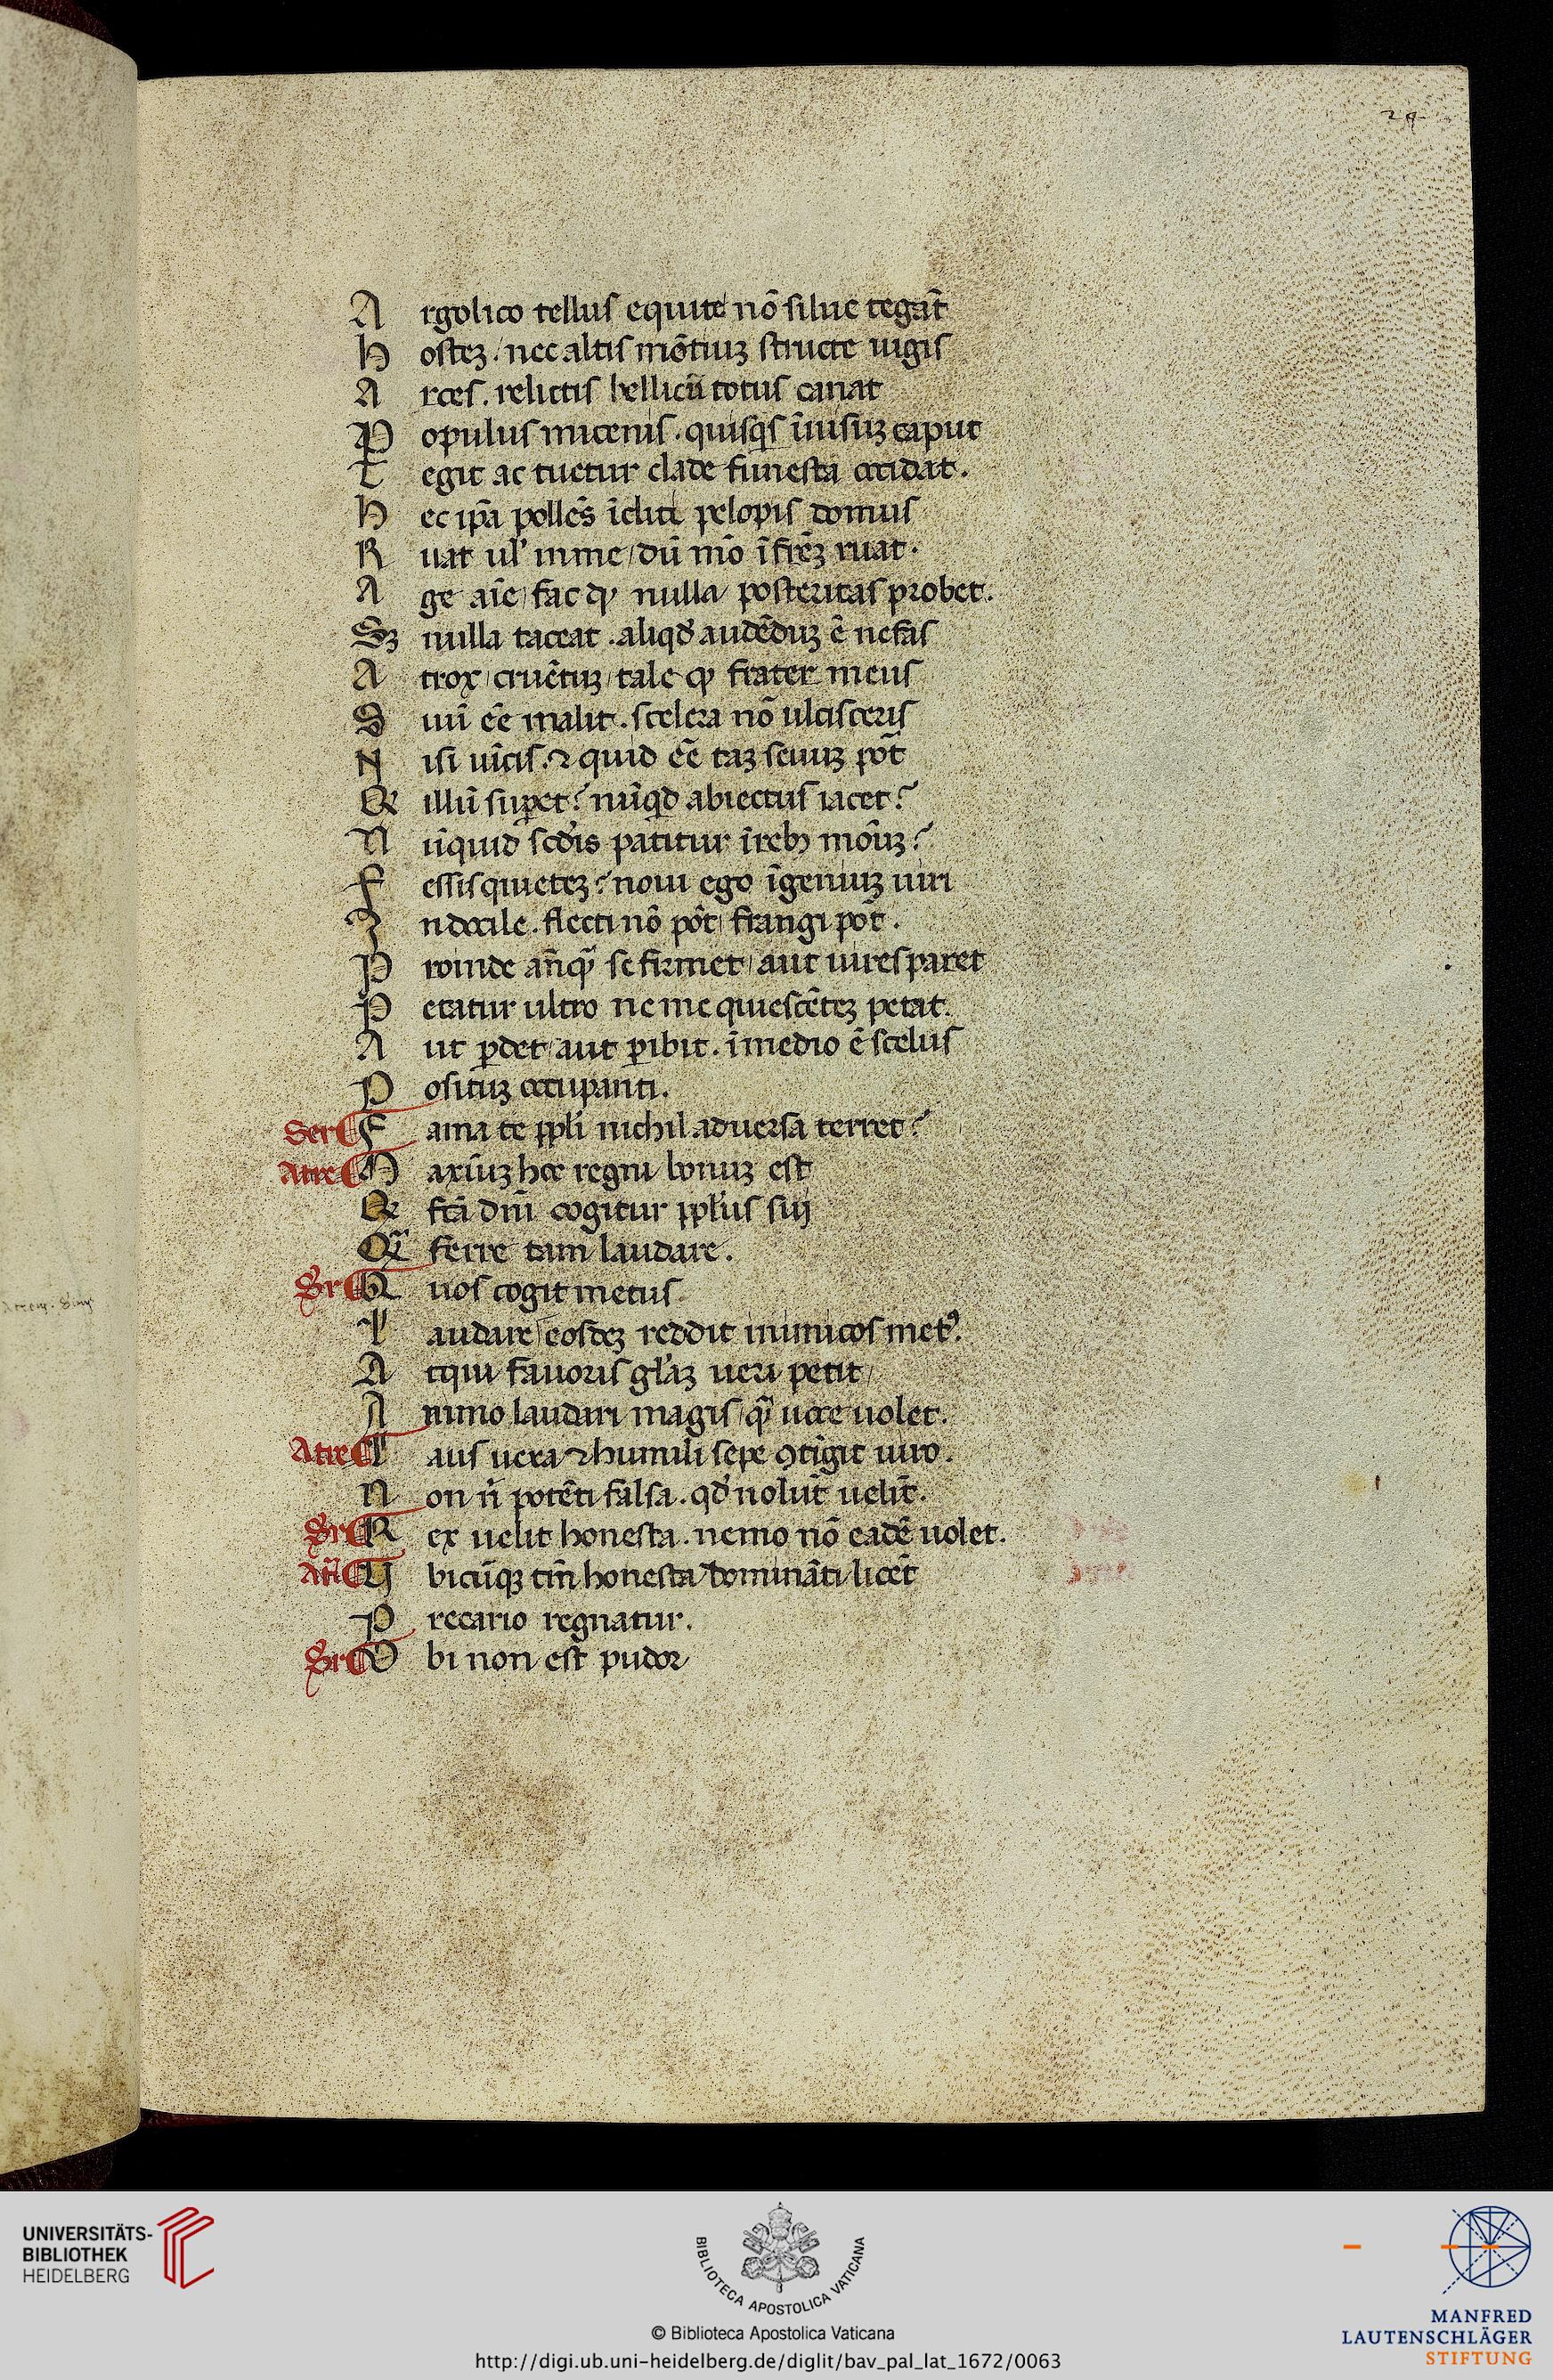 24
A rgolico tellus equite nō silue tegāt
H ostez / nec altis mōtiuz structe iugis
A rces . relictis bellicū totus canat
P opulus micenis . quisq̄s ī̄uisuz caput
T egit ac tuetur clade funesta occidat .
H ec ip̄a pollēs īcliti pelopis domus
R uat ul' in me / dū mō ī frēz ruat .
A ge aīe / fac qꝫ nulla posteritas probet .
Sꝫ nulla taceat . aliqd̓ audēduz ē nefas
A trox / cruētuz / tale qꝫ frater meus
S uū eē malit . scelera nō ulcisceris
N isi uīcis . ⁊ quid eē taz seuuz pōt
Q illū suꝑet ? nūqd abiectus iacet ?
N ūquid scd̓is patitur ī rebꝫ moduz ?
F essis quietez ? noui ego īgeniuz uiri
I ndocile . flecti nō pōt / frangi pōt .
P roinde añq̃ se firmet / aut uires paret
P etatur ultro ne me quiescētez petat .
A ut ꝑdet / aut ꝑibit . ī medio ē scelus
P ositiuz occupanti .
Ser F ama te ppl̓i nichil aduersa terret ?
Atre M axiuz hoc regni bonuz est
Q fc̄a dn̄i cogitur ppl̓us sui
Q̃ ferre tam laudare .
Sr Q uos cogit metus
L audare / eosdez reddit inimicos metꝰ .
A tqui fauoris gl̓az ueri petit /
A nimo laudari magis / q̃ uoce uolet .
Atre L aus uera ⁊ humili sepe ꝯtīgit uiro .
N on ñ potēti falsa . qd̓ nolūt uelīt .
Sr R ex uelit honesta . nemo nō eadē uolet .
Atr̄ U bicūqꝫ tm̄ honesta dominā̄ti licēt
P recario regnatur .
Sr U bi non est pudor
UNIVERSITÄTS-
BIBLIOTHEK
HEIDELBERG
BIBLIOTECA APOSTOLICA VATICANA
© Biblioteca Apostolica Vaticana
http://digi.ub.uni-heidelberg.de/diglit/bav_pal_lat_1672/0063
MANFRED
LAUTENSCHLÄGER
STIFTUNG